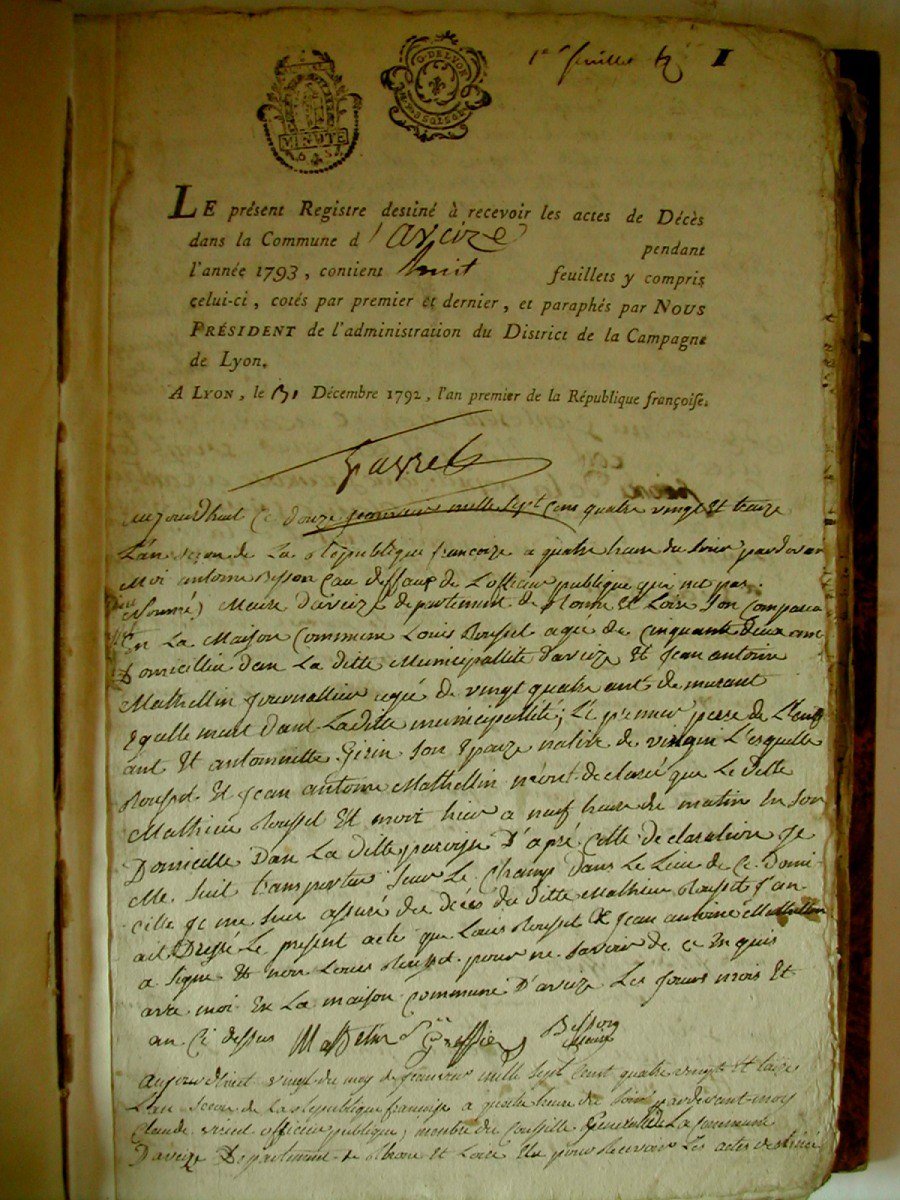 1er feuillet 1
G. DE LYON
MINUTE
LE présent Registre destiné à recevoir les actes de Décès
dans la Commune d'aveize pendant
l'année 1793, contient huit feuillets y compris
celui-ci, cotés par premier et dernier, et paraphés par NOUS
PRÉSIDENT de l'administration du District de la Campagne
de Lyon.
A LYON, le 31 Décembre 1792, l'an premier de la République françoise.
aujourdhuit ce douze jeanvier mille sept cens quatre vingt et traize
L'an segon de La République francoize a quatre heure du soir pardevan
Moi antoine Besson au deffaut de Lofficier publique qui net pas
Nommé Maire d'aveize departement de Rhone et Loire Son comparu
En La Maison Commune Louis Roussel agé de cinquante deux ans
Domicillié dan La ditte Municipallité d'aveize Et Jean antoine
Mathellin Journallier agé de vingt quatre ant demurant
Egallemant dant Laditte municipallité, Le premier pere de L'enf
ant Et antoinette Girin Son Epouze native de L'esquelle
Roussel Et Jean antoine Mathellin m'ont declaré que Le ditte
Mathieu Roussel Et mort hier a neuf heure du matin En son
Domicille Dan La ditte paroise D'apré cette declaration Je
Me suit transporter sur Le champ dans Le Lieu de Ce Domi-
cille Je me suis assuré du décés du ditte Mathieu Roussel J'an
ait Dressé Le present acte que Louis Roussel Et Jean antoine Mathellin
a signé Et non Louis Roussel pour ne savoir de ce Enquis
avec moi En La maison commune D'aveize Les Jours mois Et
an Ci dessus Greffier Besson
Maire
aujourdhuit vingt du moy de Jeanvier mille sept cent quatre vingt et traize
L'an segon de La République françoise a quatre heure du soir pardevant moy
Claude officier publique, membre du Conseille General de La commune
D'aveize Departement de Rhone et Loire Elu pour Recevoir Les actes